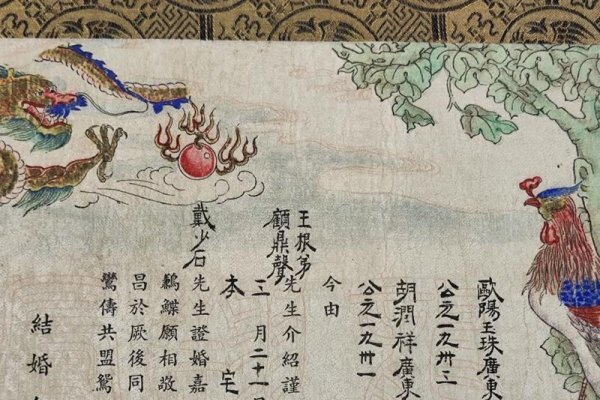 歐陽玉珠廣東
公元一九卅二
胡潤祥廣東
公元一九卅一
今由
王根弟
顧鼎聲先生介紹謹
三月二十一日
本宅
戴少石先生證婚嘉
鶼鰈願相敬
昌於厥後同
鶯儔共盟鴛
結婚